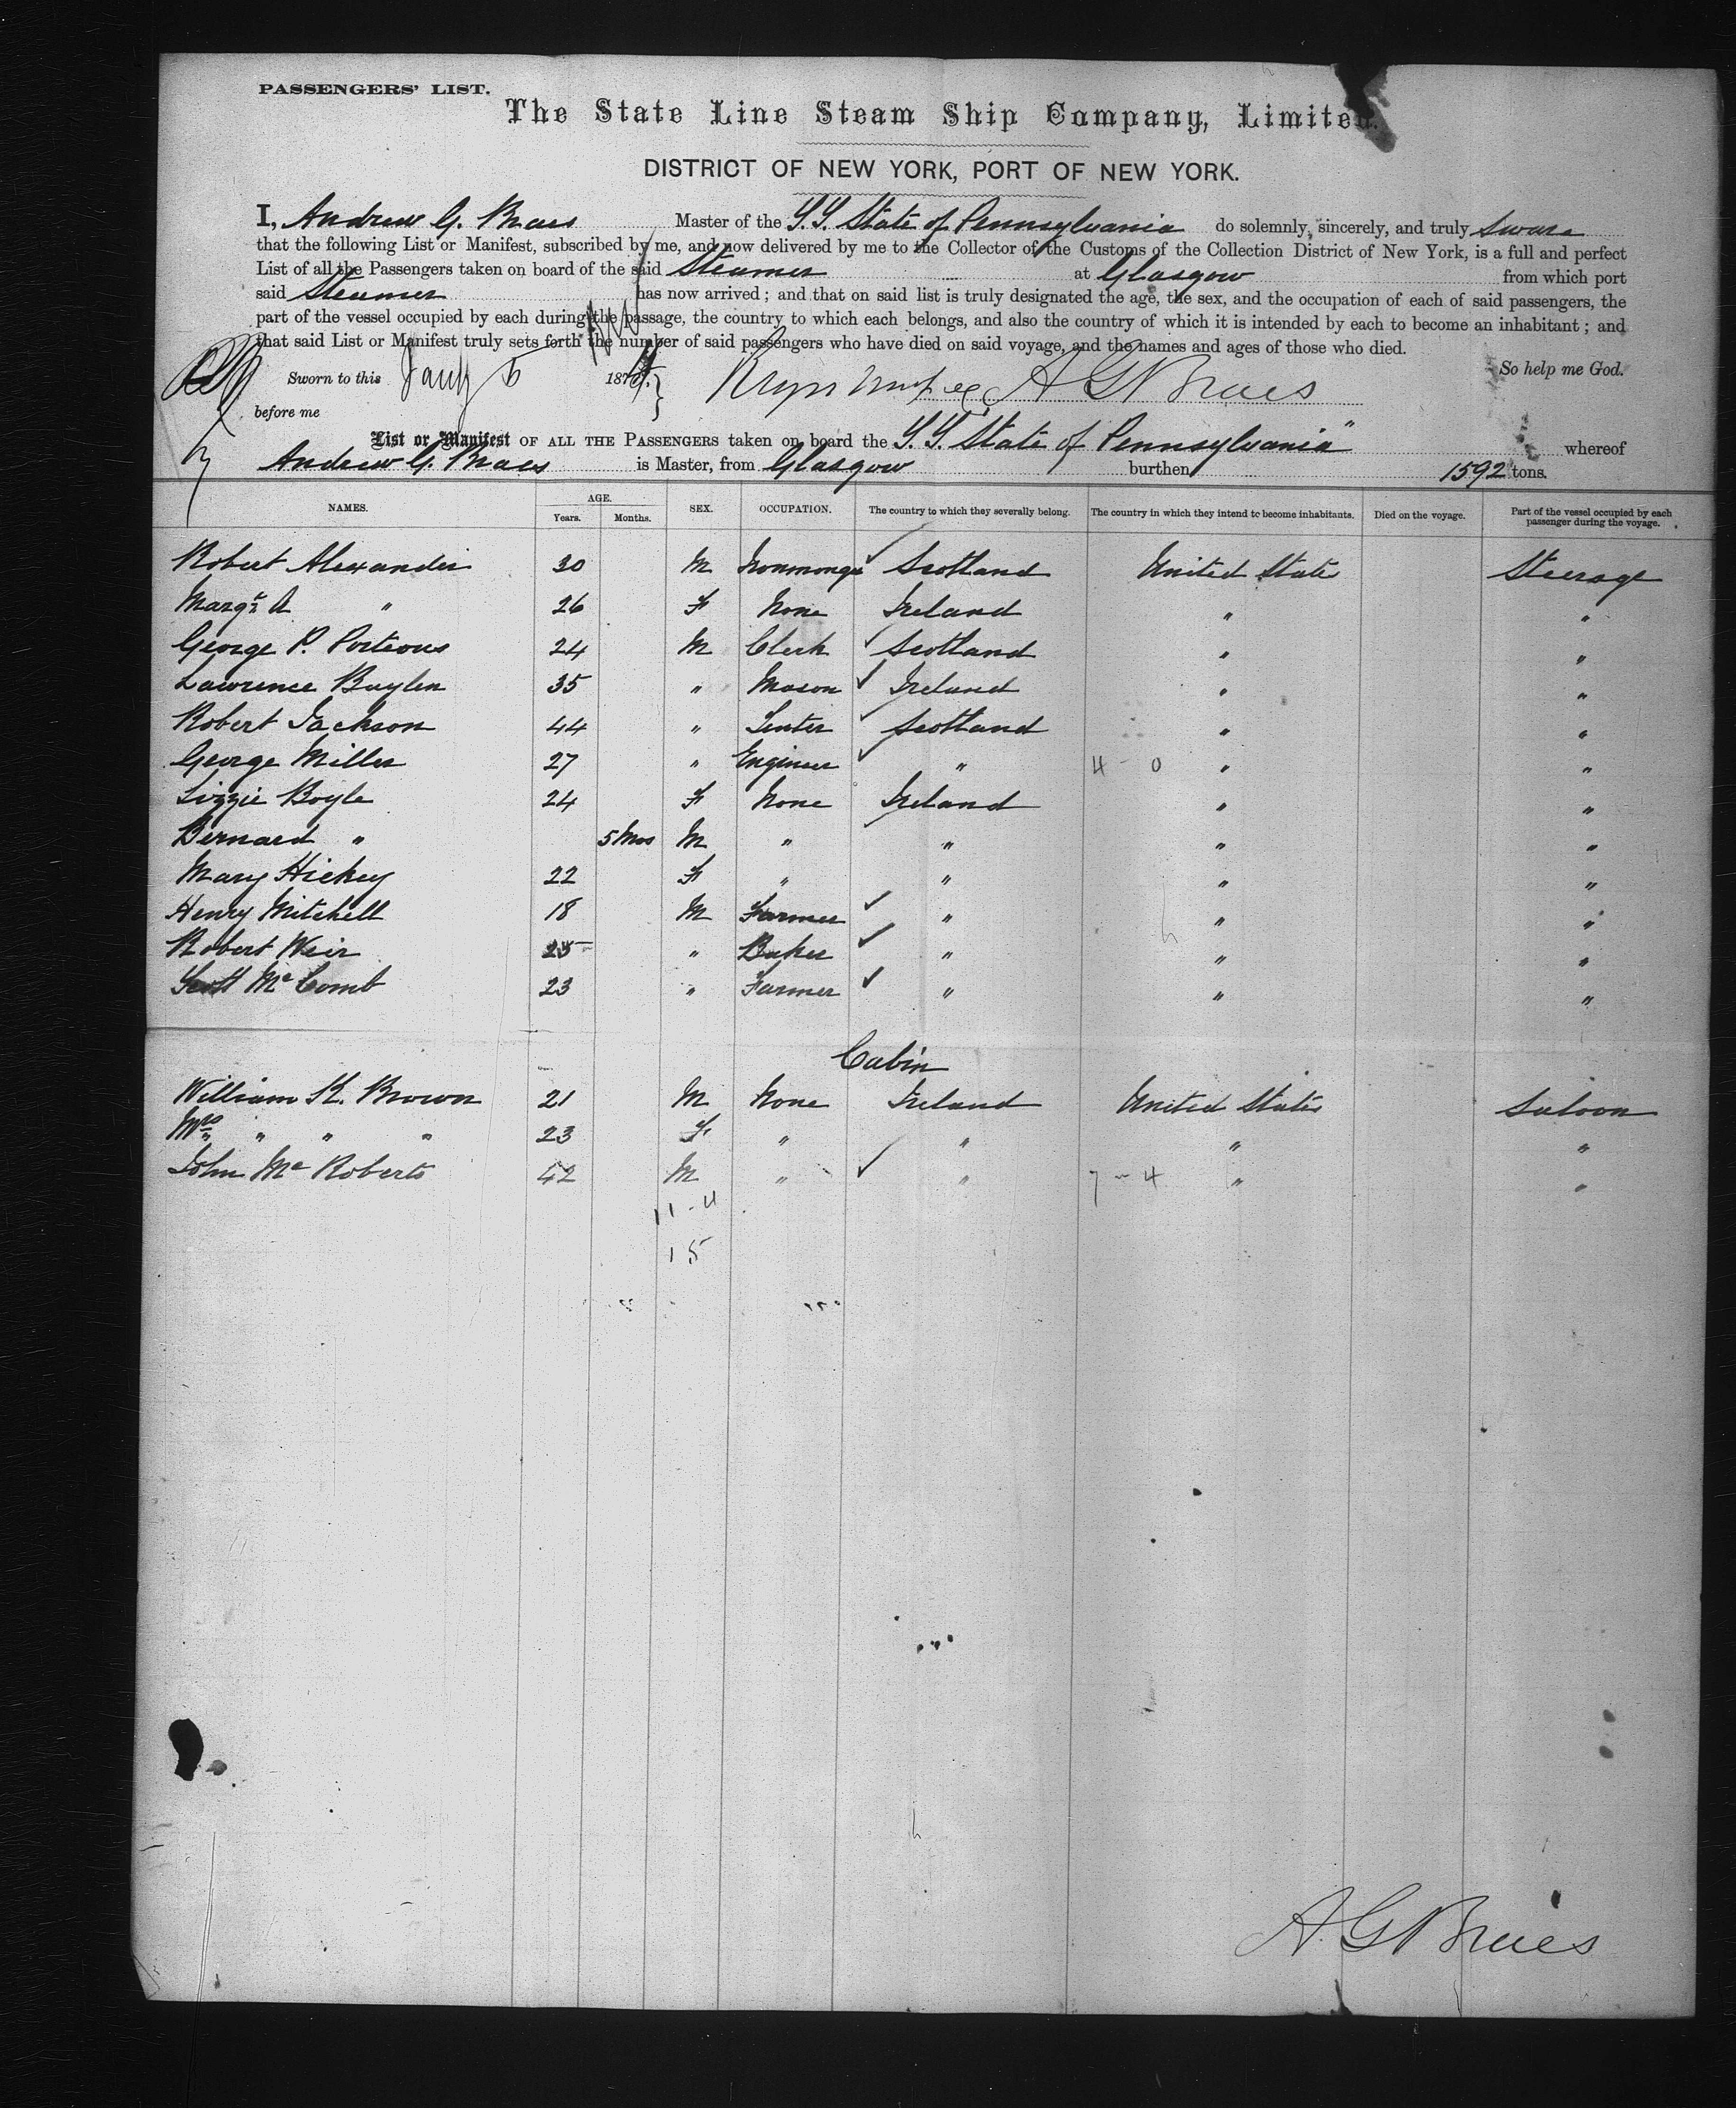 PASSENGERS' LIST.
The State Line Steam Ship Company, Limited.
DISTRICT OF NEW YORK, PORT OF NEW YORK.
I, Andrew G. Braes Master of the S.S. State of Pennsylvania do solemnly, sincerely, and truly Sware
that the following List or Manifest, subscribed by me, and now delivered by me to the Collector of the Customs of the Collection District of New York, is a full and perfect
List of all the Passengers taken on board of the said Steamer at Glasgow from which port
said Steamer has now arrived; and that on said list is truly designated the age, the sex, and the occupation of each of said passengers, the
part of the vessel occupied by each during the passage, the country to which each belongs, and also the country of which it is intended by each to become an inhabitant; and
that said List or Manifest truly sets forth the number of said passengers who have died on said voyage, and the names and ages of those who died.
So help me God.
Sworn to this Jany 5 187 A G Braes
before me
List or Manifest OF ALL THE PASSENGERS taken on board the S.S. State of Pennsylvania" whereof
Andrew G. Braes is Master, from Glasgow burthen 1592 tons.
NAMES. AGE. Years. Months. SEX. OCCUPATION. The country to which they severally belong. The country in which they intend to become inhabitants. Died on the voyage. Part of the vessel occupied by each passenger during the voyage.
Robert Alexander 30 M Ironmonger Scotland United States Steerage
Margt A " 26 F None Ireland " "
George P. Porteous 24 M Clerk Scotland " "
Lawrence Boylen 35 " Mason Ireland " "
Robert Jackson 44 " Scotland " "
George Miller 27 " Engineer " 4 - 0 " "
Lizzie Boyle 24 F None Ireland " "
Bernard " 5 Mos M " " " "
Mary Hickey 22 F " " " "
Henry Mitchell 18 M Farmer " " "
Robert Weir 25 " Baker " " "
Scott McComb 23 " Farmer " " "
Cabin
William K. Brown 21 M None Ireland United States Saloon
Mrs " " " 23 F " " " "
John McRoberts 42 M " " 7 - 4 " "
11 - 4
15
A. G Braes